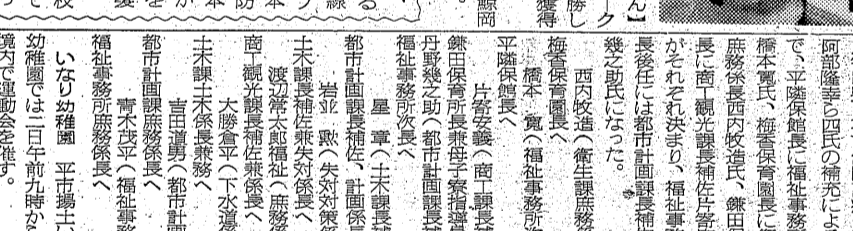 ーク
勝し
獲得
鯨岡
阿部隆幸ら四氏の補充によ
で、平隣保館長に福祉事務
橋本寛氏、梅香保育園長に
庶務係長西内牧造氏、鎌田保
長に商工観光課長補佐片寄
がそれぞれ決まり、福祉事務
長後任には都市計画課長補
幾之助氏になった。
西内牧造（衛生課庶務係
梅香保育園長へ
橋本　寛（福祉事務所次
平隣保館長へ
片寄安義（商工課長補
鎌田保育所長兼母子寮指導員
丹野幾之助（都市計画課長
福祉事務所次長へ
星　章（土木課長補
都市計画課長補佐、計画係長
岩並　勲（失対対策係
土木課長補佐兼失対係長へ
渡辺常太郎福祉（庶務係
商工観光課長補佐兼係長へ
大勝倉平（下水道係
土木課土木係長兼務へ
吉田道男（都市計
都市計画課庶務係長へ
青木茂平（福祉事
福祉事務所庶務係長へ
いなり幼稚園　平市揚土い
幼稚園では二日午前九時から
境内で運動会を催す。